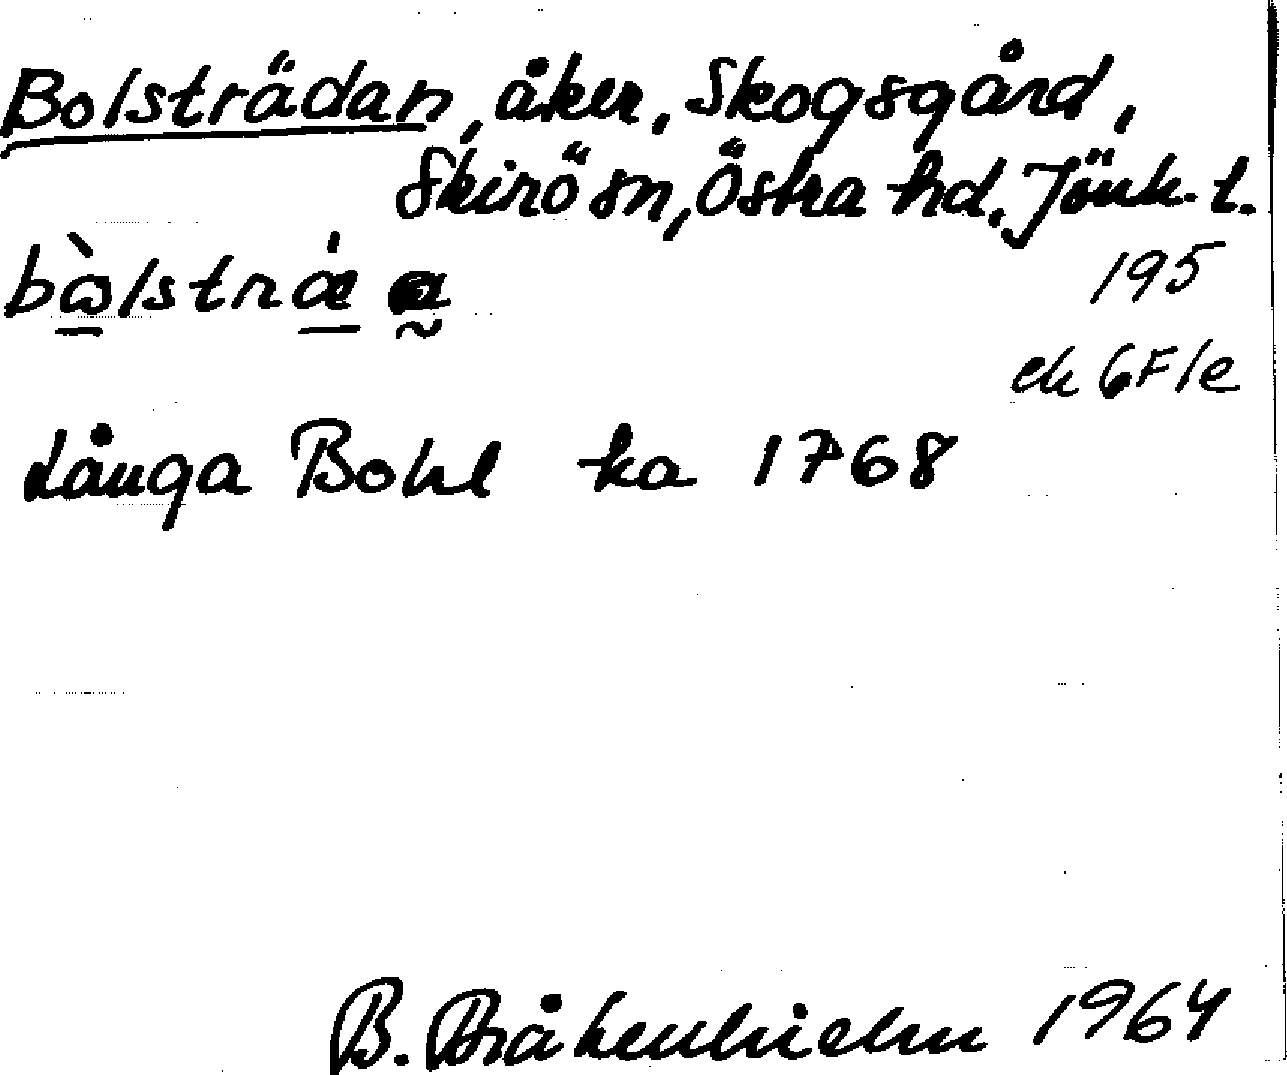 Bolsträdan, åker, Skogsgård,
Skirö sn, Östra hd. Jönk. l.
195
ek 6F1e
Långa Bohl ka 1768
B. Bråkenhielm 1964